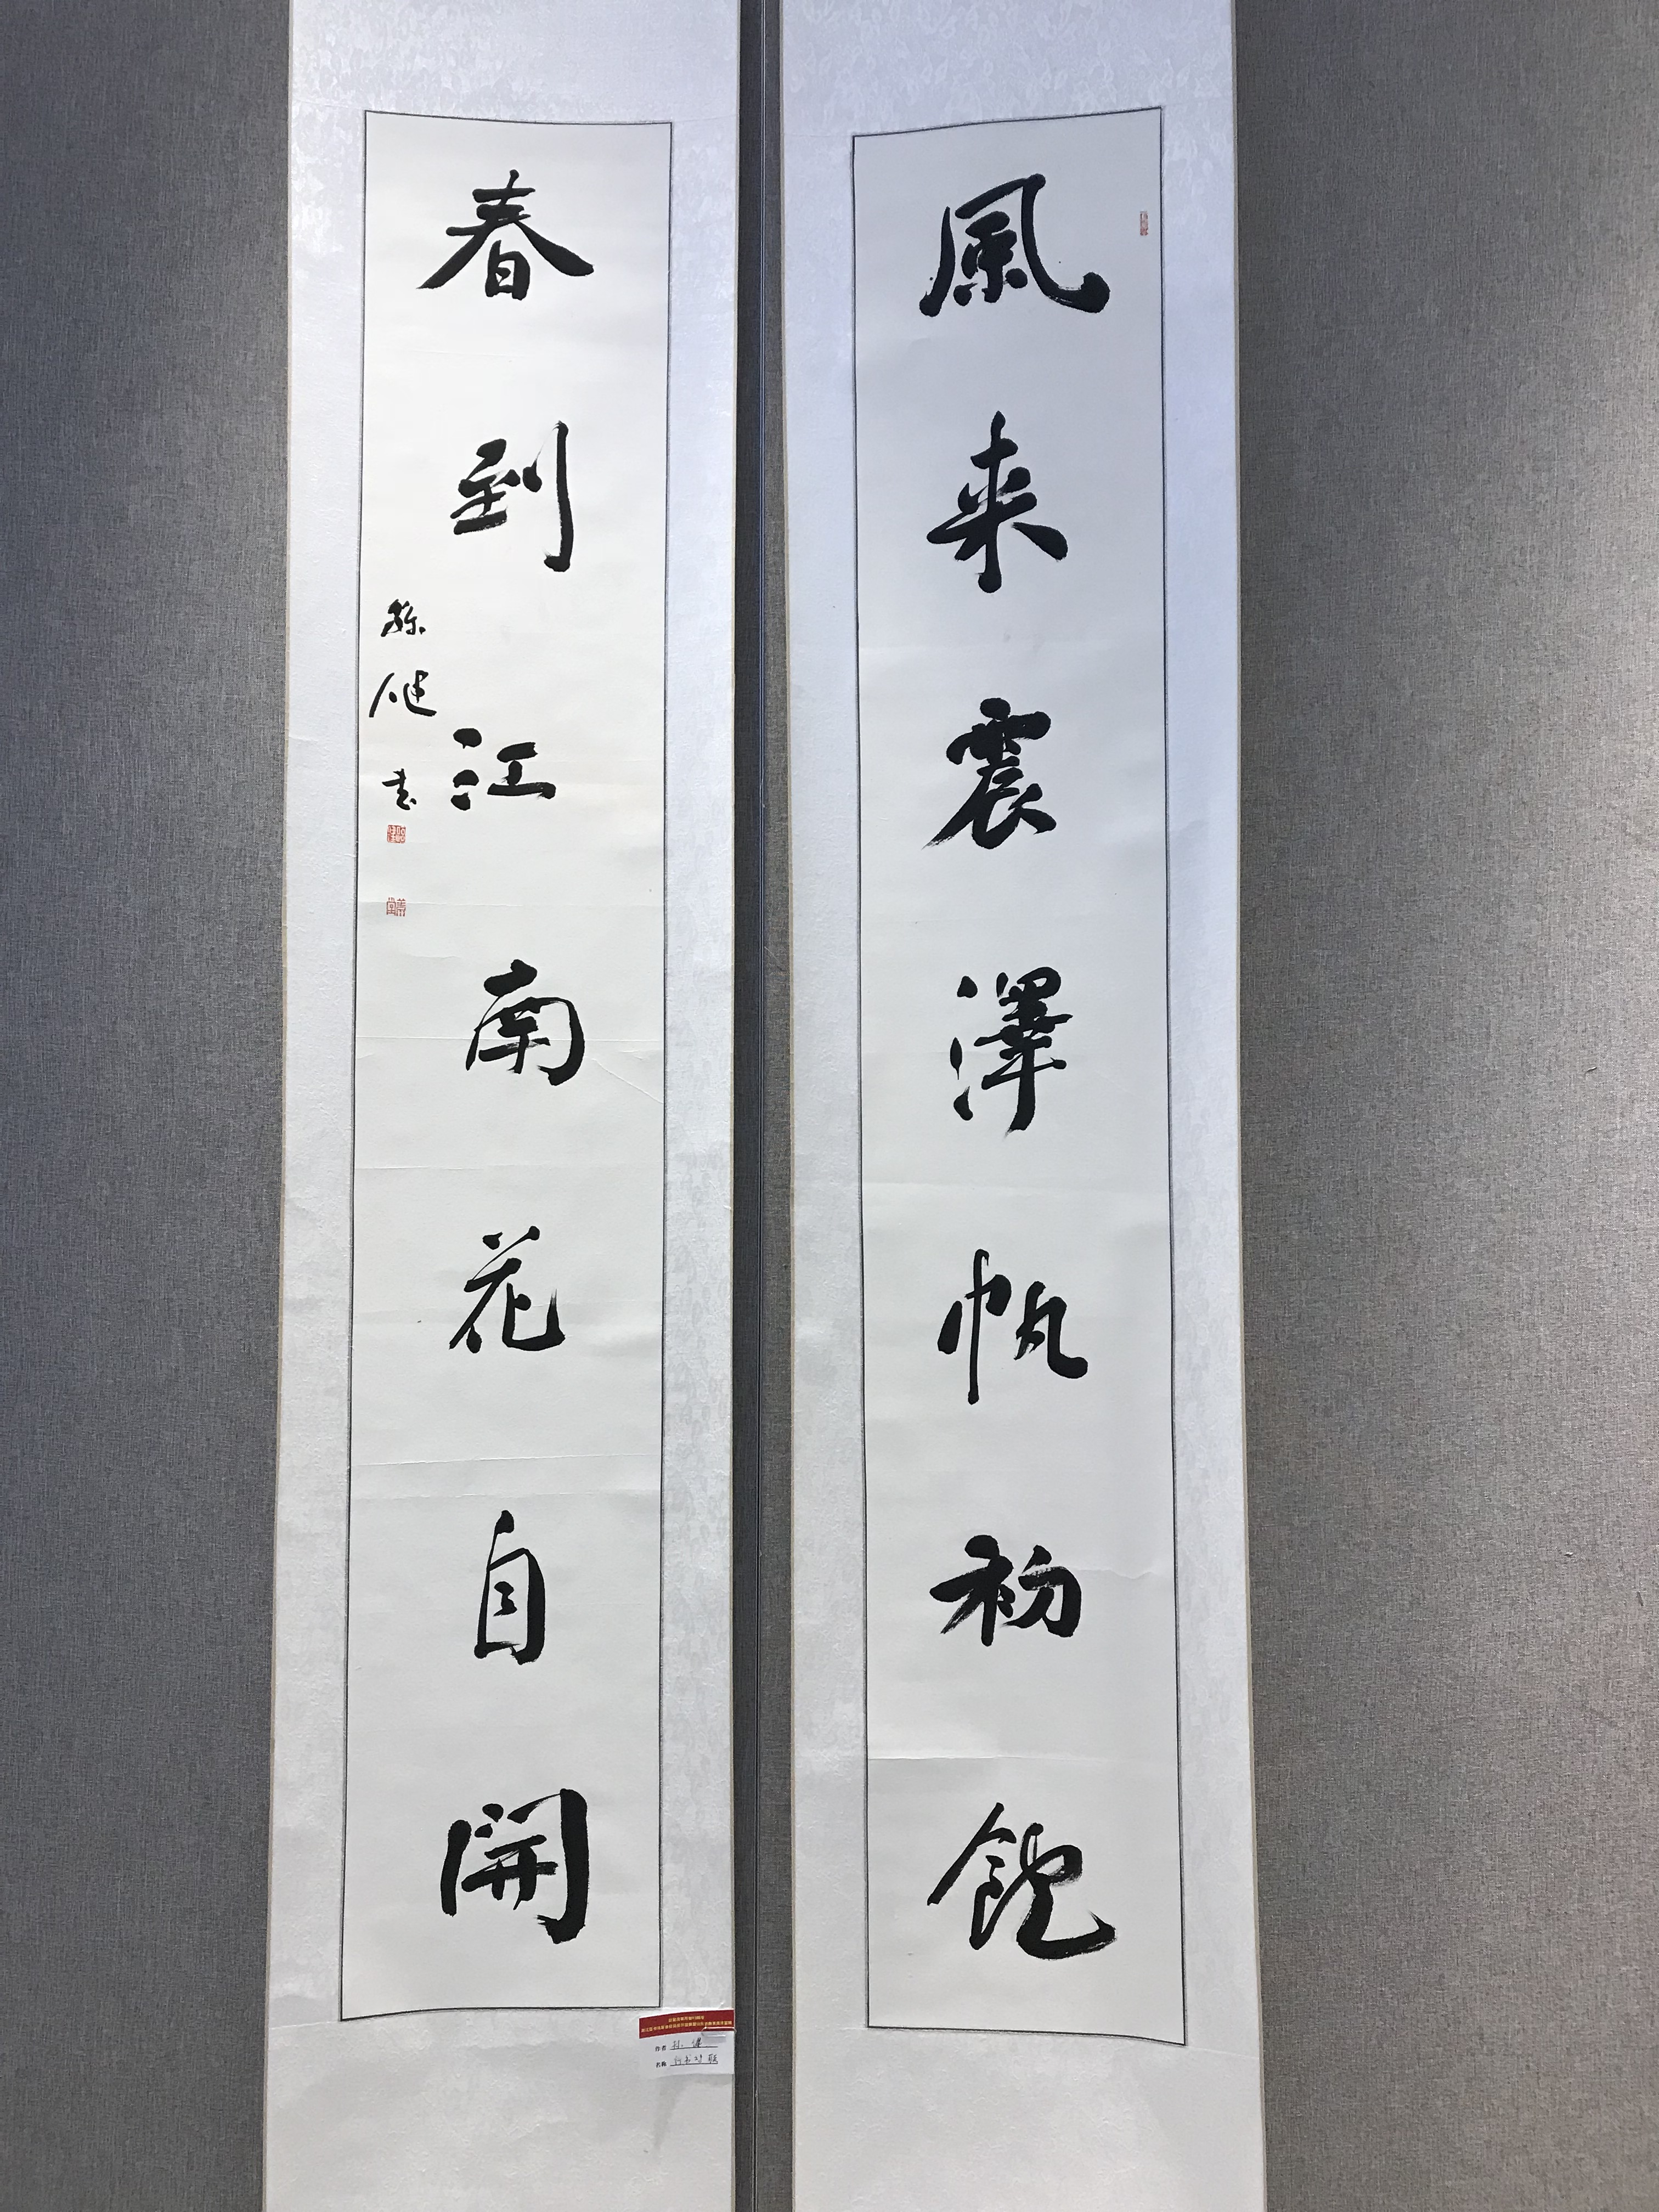 風来震澤帆初飽
春到江南花自開
孫健书
作者 孙健
名称 行书对联